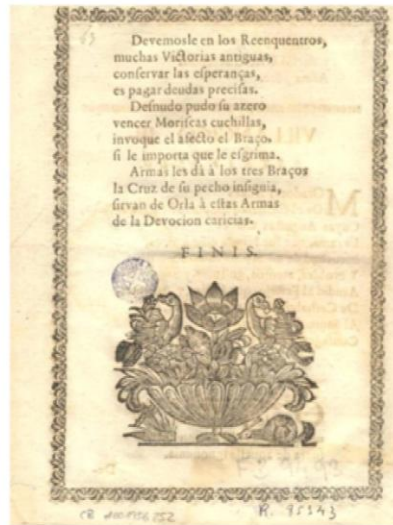 63
Devemosle en los Reenquentros,
muchas Victorias antiguas,
conſervar las eſperanças,
es pagar deudas preciſas.
Deſnudo pudo ſu azero
vencer Moriſcas cuchillas,
invoque el afecto el Braço.
ſi le importa que le eſgrima.
Armas les dà à los tres Braços
la Cruz de ſu pecho inſignia,
ſirvan de Orla à eſtas Armas
de la Devocion caricias.
FINIS.
R. 95343